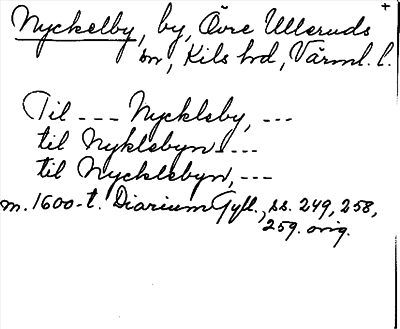 Nyckelby, by, Övre Ulleruds +
sn, Kils hd, Värml. l.
Til --- Nyckleby, ---
til Nyklebyn ---
til Nycklebyn, ---
m. 1600-t. Diarium Gyll., ss. 249, 258,
259. orig.